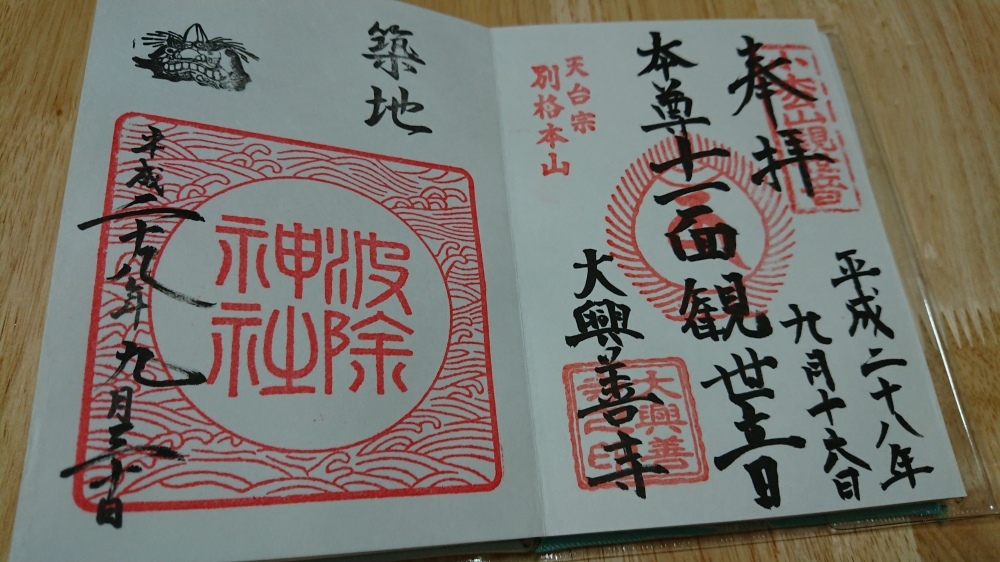 奉拝
本尊十一面観世音
天台宗
別格本山
大興善寺
平成二十八年
九月十六日
小松山観世音
大興善
築地
波除
神社
平成二十八年九月三十日